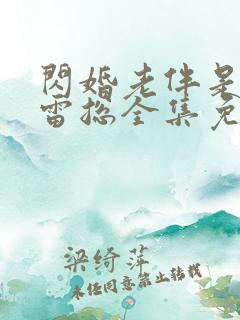 閃婚老伴是
雷總全集免
梁绮萍
未经同意禁止转载